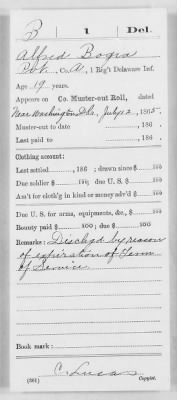 B 1 Del.
Alfred Bogia
Pvt., Co. A, 1 Reg't Delaware Inf.
Age 19 years.
Appears on Co. Muster-out Roll, dated
Near Washington D.C., July 12, 1865.
Muster-out to date , 186 .
Last paid to , 186 .
Clothing account:
Last settled , 186 ; drawn since $ 100
Due soldier $ 100 ; due U. S. $ 100
Am't for cloth'g in kind or money adv'd $ 100
Due U. S. for arms, equipments, &c., $ 100
Bounty paid $ 100 ; due $ 100
Remarks: Disch'gd by reason
of expiration of Term
of Service
Book mark:
C. Lucas
(361) Copyist.